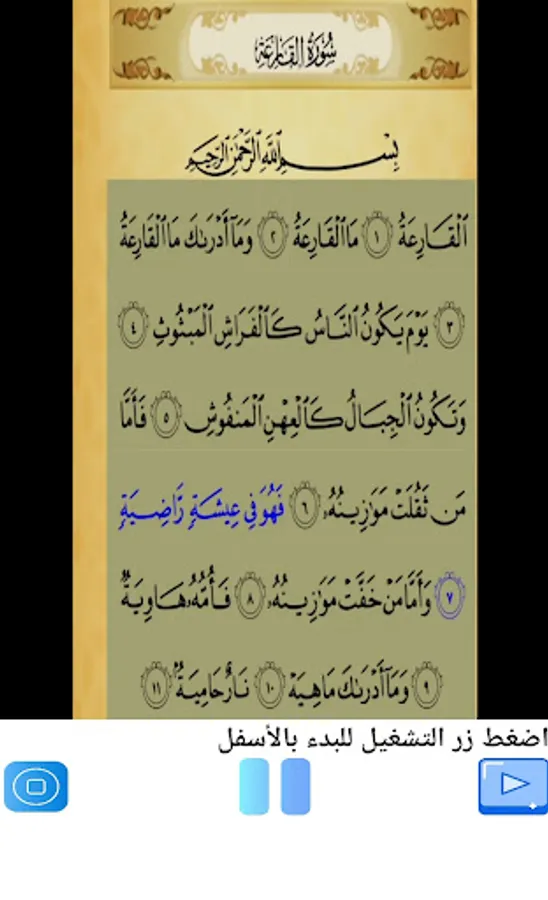 سُورَةُ القَارِعَةِ
بِسْمِ ٱللَّهِ ٱلرَّحْمَٰنِ ٱلرَّحِيمِ
ٱلْقَارِعَةُ ١ مَا ٱلْقَارِعَةُ ٢ وَمَآ أَدْرَىٰكَ مَا ٱلْقَارِعَةُ
٣ يَوْمَ يَكُونُ ٱلنَّاسُ كَٱلْفَرَاشِ ٱلْمَبْثُوثِ ٤
وَتَكُونُ ٱلْجِبَالُ كَٱلْعِهْنِ ٱلْمَنفُوشِ ٥ فَأَمَّا
مَن ثَقُلَتْ مَوَٰزِينُهُۥ ٦ فَهُوَ فِى عِيشَةٍ رَّاضِيَةٍ
٧ وَأَمَّا مَنْ خَفَّتْ مَوَٰزِينُهُۥ ٨ فَأُمُّهُۥ هَاوِيَةٌ
٩ وَمَآ أَدْرَىٰكَ مَا هِيَهْ ١٠ نَارٌ حَامِيَةٌۢ ١١
اضغط زر التشغيل للبدء بالأسفل